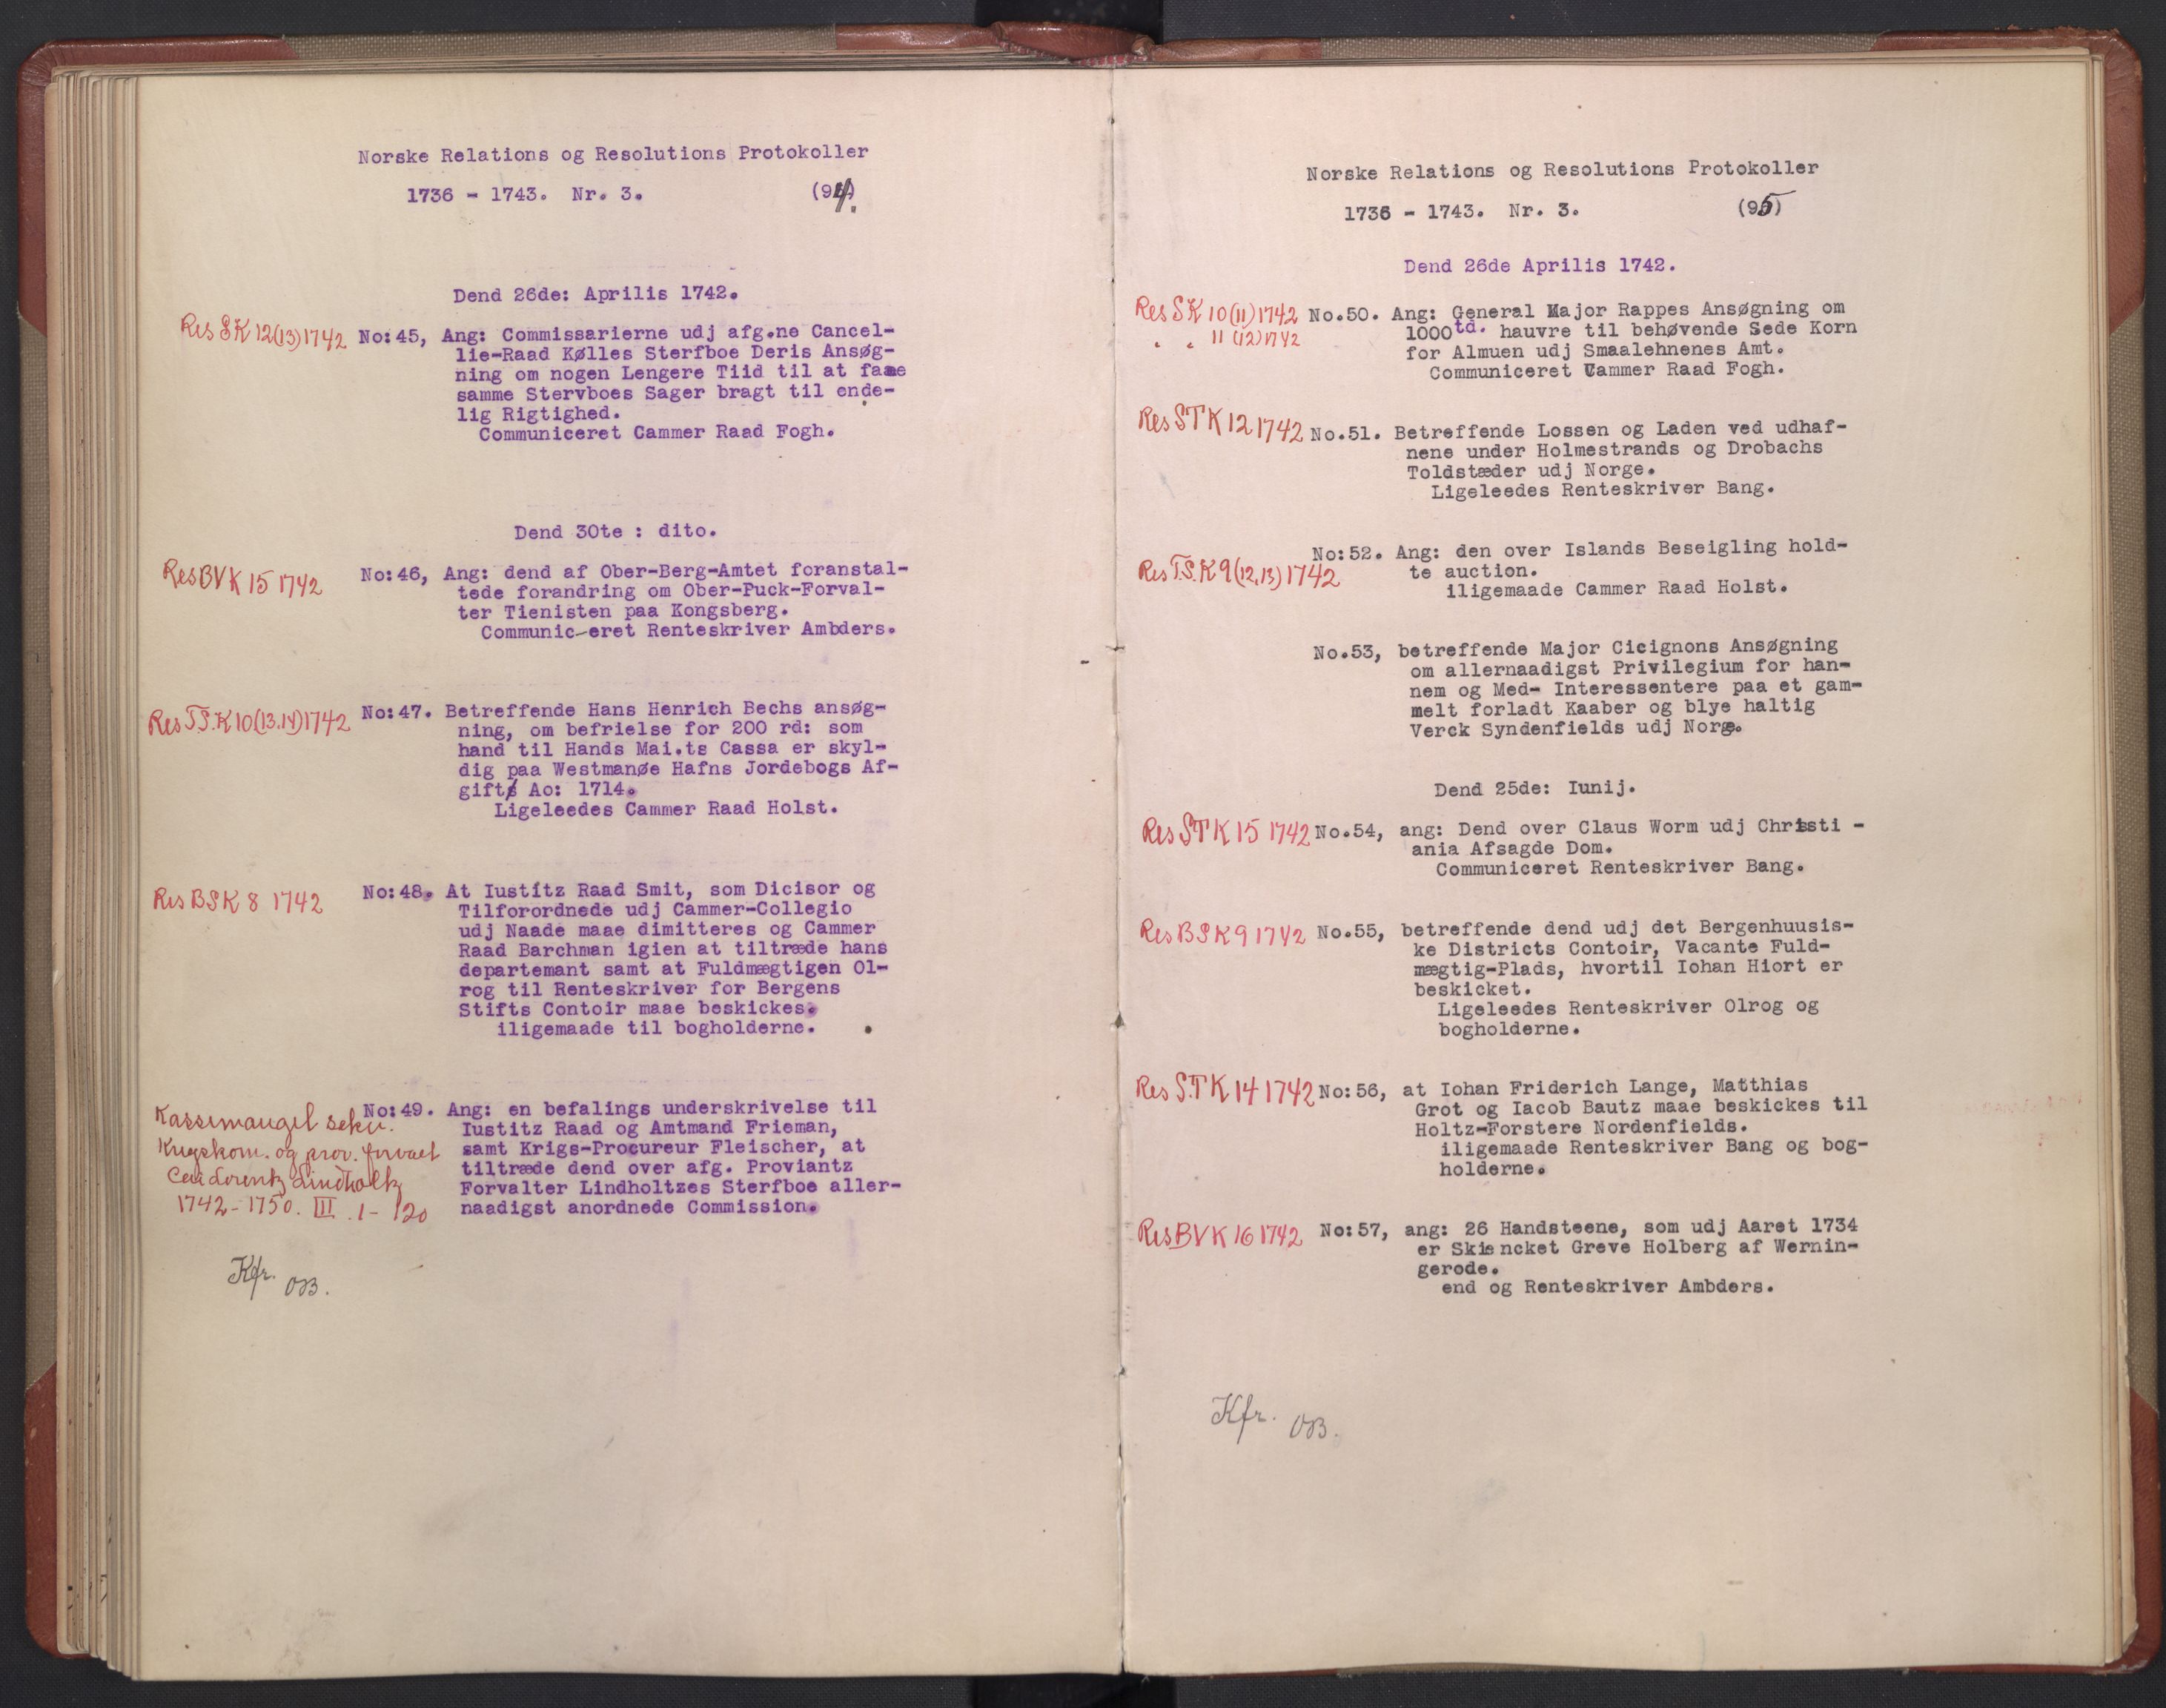 Norske Relations og Resolutions Protokoller
1736 - 1743. Nr. 3. (94)
Dend 26de: Aprilis 1742.
Res SK 12(13)1742 No:45, Ang: Commissarierne udj afg.ne Cancel-
lie-Raad Kølles Sterfboe Deris Ansøg-
ning om nogen Lengere Tiid til at faae
samme Stervboes Sager bragt til ende-
lig Rigtighed.
Communiceret Cammer Raad Fogh.
Dend 30te : dito.
Res BVK 15 1742 No:46, Ang: dend af Ober-Berg-Amtet foranstal-
tede forandring om Ober-Puck-Forval-
ter Tienisten paa Kongsberg.
Communic-eret Renteskriver Ambders.
Res T.S.K 10(13.14)1742 No:47. Betreffende Hans Henrich Bechs ansøg-
ning, om befrielse for 200 rd: som
hand til Hands Mai.ts Cassa er skyl-
dig paa Westmanøe Hafns Jordebogs Af-
gift Ao: 1714.
Ligeleedes Cammer Raad Holst.
Res BSK 8 1742 No:48. At Iustitz Raad Smit, som Dicisor og
Tilforordnede udj Cammer-Collegio
udj Naade maae dimitteres og Cammer
Raad Barchman igien at tiltræde hans
departemant samt at Fuldmægtigen Ol-
rog til Renteskriver for Bergens
Stifts Contoir maae beskickes.
iligemaade til bogholderne.
No:49. Ang: en befalings underskrivelse til
Iustitz Raad og Amtmand Frieman,
samt Krigs-Procureur Fleischer, at
tiltræde dend over afg. Proviantz
Forvalter Lindholtzes Sterfboe aller-
naadigst anordnede Commission.
Kassemangel
og prov.
Lindholtz
1742-1750. III. 1- 120
Kfr. OB.
Norske Relations og Resolutions Protokoller
1736 - 1743. Nr. 3. (95)
Dend 26de Aprilis 1742.
Res SK 10(11)1742 No.50. Ang: General Major Rappes Ansøgning om
" " 11(12)1742 1000 td. hauvre til behøvende Sede Korn
for Almuen udj Smaalehnenes Amt.
Communiceret Cammer Raad Fogh.
Res STK 12 1742 No.51. Betreffende Lossen og Laden ved udhaf-
nene under Holmestrands og Drobachs
Toldstæder udj Norge.
Ligeleedes Renteskriver Bang.
Res T.S.K 9(12,13)1742 No:52. Ang: den over Islands Beseigling hold-
te auction.
iligemaade Cammer Raad Holst.
No.53, betreffende Major Cicignons Ansøgning
om allernaadigst Privilegium for han-
nem og Med- Interessentere paa et gam-
melt forladt Kaaber og blye haltig
Verck Syndenfields udj Norge.
Dend 25de: Iunij.
Res STK 15 1742 No.54, ang: Dend over Claus Worm udj Christi -
ania Afsagde Dom.
Communiceret Renteskriver Bang.
Res BSK 9 1742 No.55, betreffende dend udj det Bergenhuusis-
ke Districts Contoir, Vacante Fuld-
mægtig-Plads, hvortil Iohan Hiort er
beskicket.
Ligeleedes Renteskriver Olrog og
bogholderne.
Res S.T.K 14 1742 No:56, at Iohan Friderich Lange, Matthias
Grot og Iacob Bautz maae beskickes til
Holtz-Forstere Nordenfields.
iligemaade Renteskriver Bang og bog-
holderne.
Res BVK 16 1742 No:57, ang: 26 Handsteene, som udj Aaret 1734
er Skiencket Greve Holberg af Wernin-
gerode.
end og Renteskriver Ambders.
Kfr. OB.